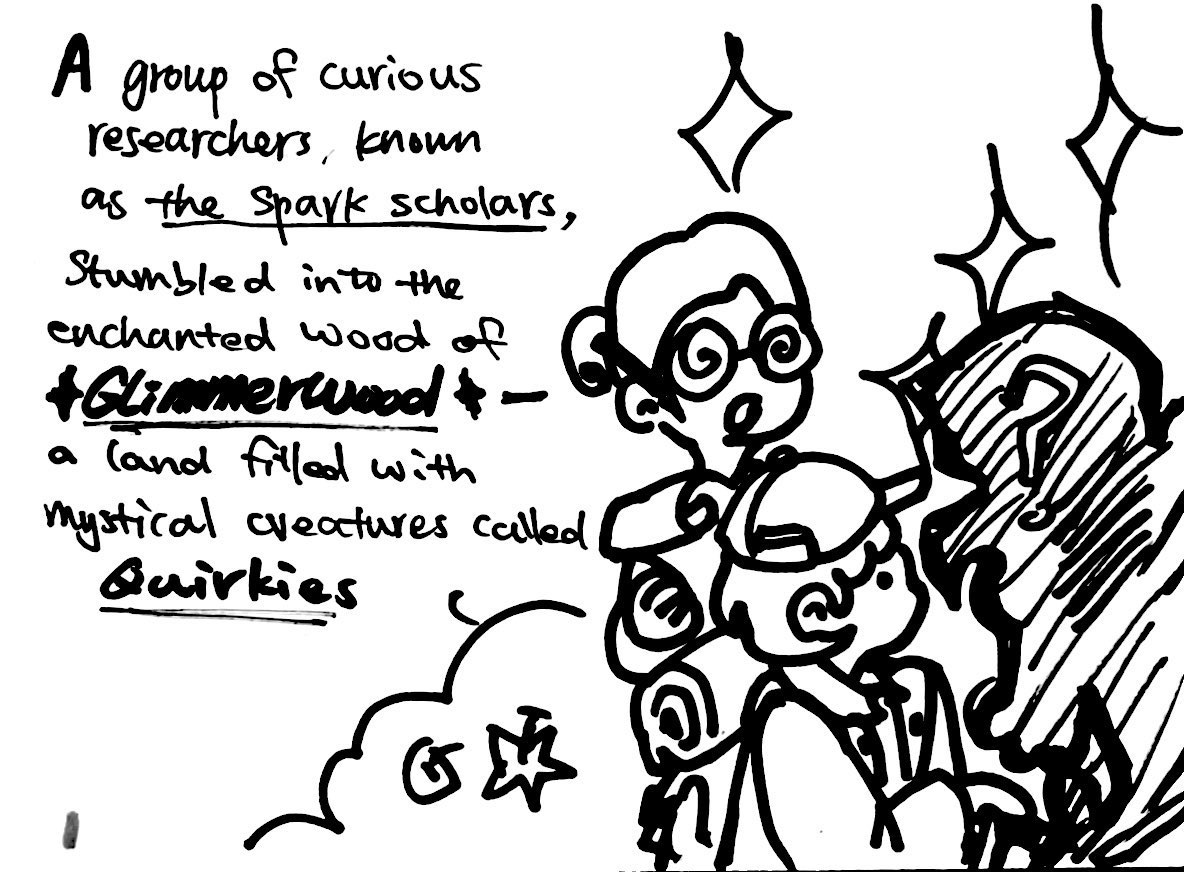 A group of curious
researchers, known
as the Spark scholars,
Stumbled into the
enchanted wood of
*Glimmerwood* —
a land filled with
mystical creatures called
Quirkies
?
1